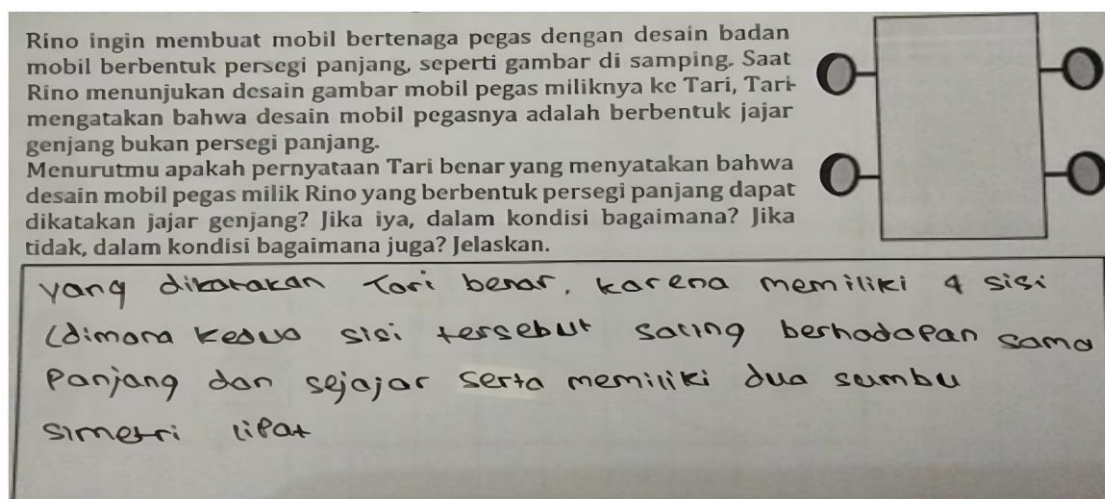 Rino ingin membuat mobil bertenaga pegas dengan desain badan
mobil berbentuk persegi panjang, seperti gambar di samping. Saat
Rino menunjukan desain gambar mobil pegas miliknya ke Tari, Tari
mengatakan bahwa desain mobil pegasnya adalah berbentuk jajar
genjang bukan persegi panjang.
Menurutmu apakah pernyataan Tari benar yang menyatakan bahwa
desain mobil pegas milik Rino yang berbentuk persegi panjang dapat
dikatakan jajar genjang? Jika iya, dalam kondisi bagaimana? Jika
tidak, dalam kondisi bagaimana juga? Jelaskan.
yang dikatakan Tari benar, karena memiliki 4 sisi
(dimana kedua sisi tersebut saling berhadapan sama
Panjang dan sejajar serta memiliki dua sumbu
simetri lipat